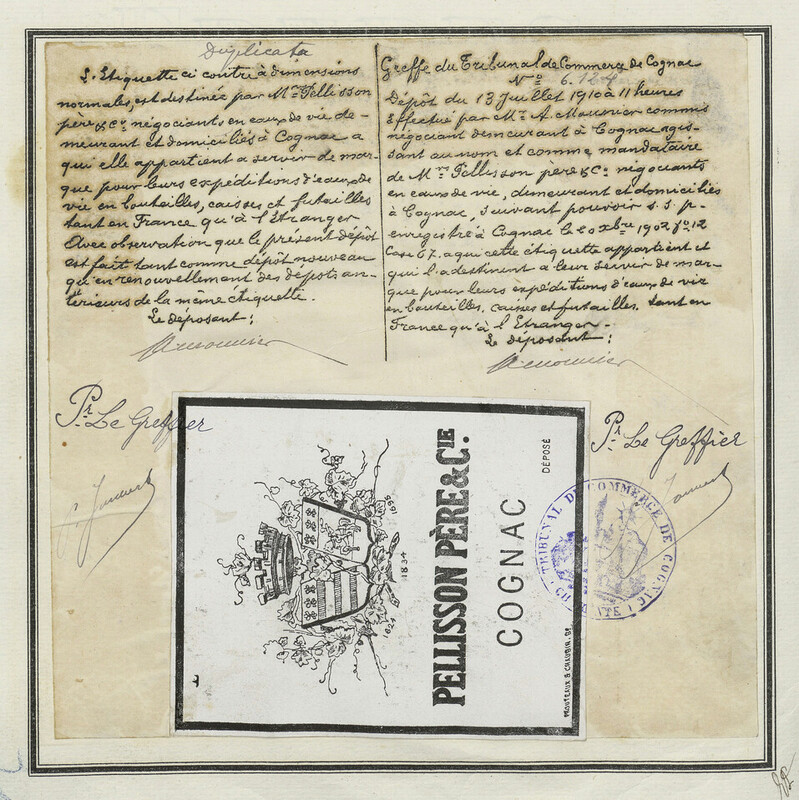 Duplicata
L'Etiquette ci contre à dimensions
normales, est destinée par Mrs Pellisson
père & Co négociants en eaux de vie de-
meurant et domiciliés à Cognac a
qui elle appartient a servir de mar-
que pour leurs expéditions d'eaux de
vie en bouteilles, caisses et futailles
tant en France qu'à l'Etranger
Avec observation que le présent dépôt
est fait tant comme dépôt nouveau
qu'en renouvellement des dépôts an-
térieurs de la même étiquette.
Le déposant:
AMounier
Greffe du Tribunal de Commerce de Cognac
No 6.124
Dépôt du 13 Juillet 1910 à 11 heures
Effectué par Mr A. Mounier commis
négociant demeurant à Cognac agis-
sant au nom et comme mandataire
de Mrs Pellisson père & Co négociants
en eaux de vie, demeurant et domiciliés
à Cognac, suivant pouvoir s.s.p.
enregistré à Cognac le 1902 fo 12
Case 67. a qui cette étiquette appartient et
qui la destinent a leur servir de mar-
que pour leurs expéditions d'eaux de vie
en bouteilles, caisses et futailles. tant en
France qu'à l'Etranger.-
Le déposant:
AMounier
Pr Le Greffier
Pr Le Greffier
1695
1834
1624
PELLISSON PÈRE & CIE.
COGNAC
DÉPOSÉ
MOUTEAUX & CHAUBIN. DÉ
TRIBUNAL DE COMMERCE DE COGNAC